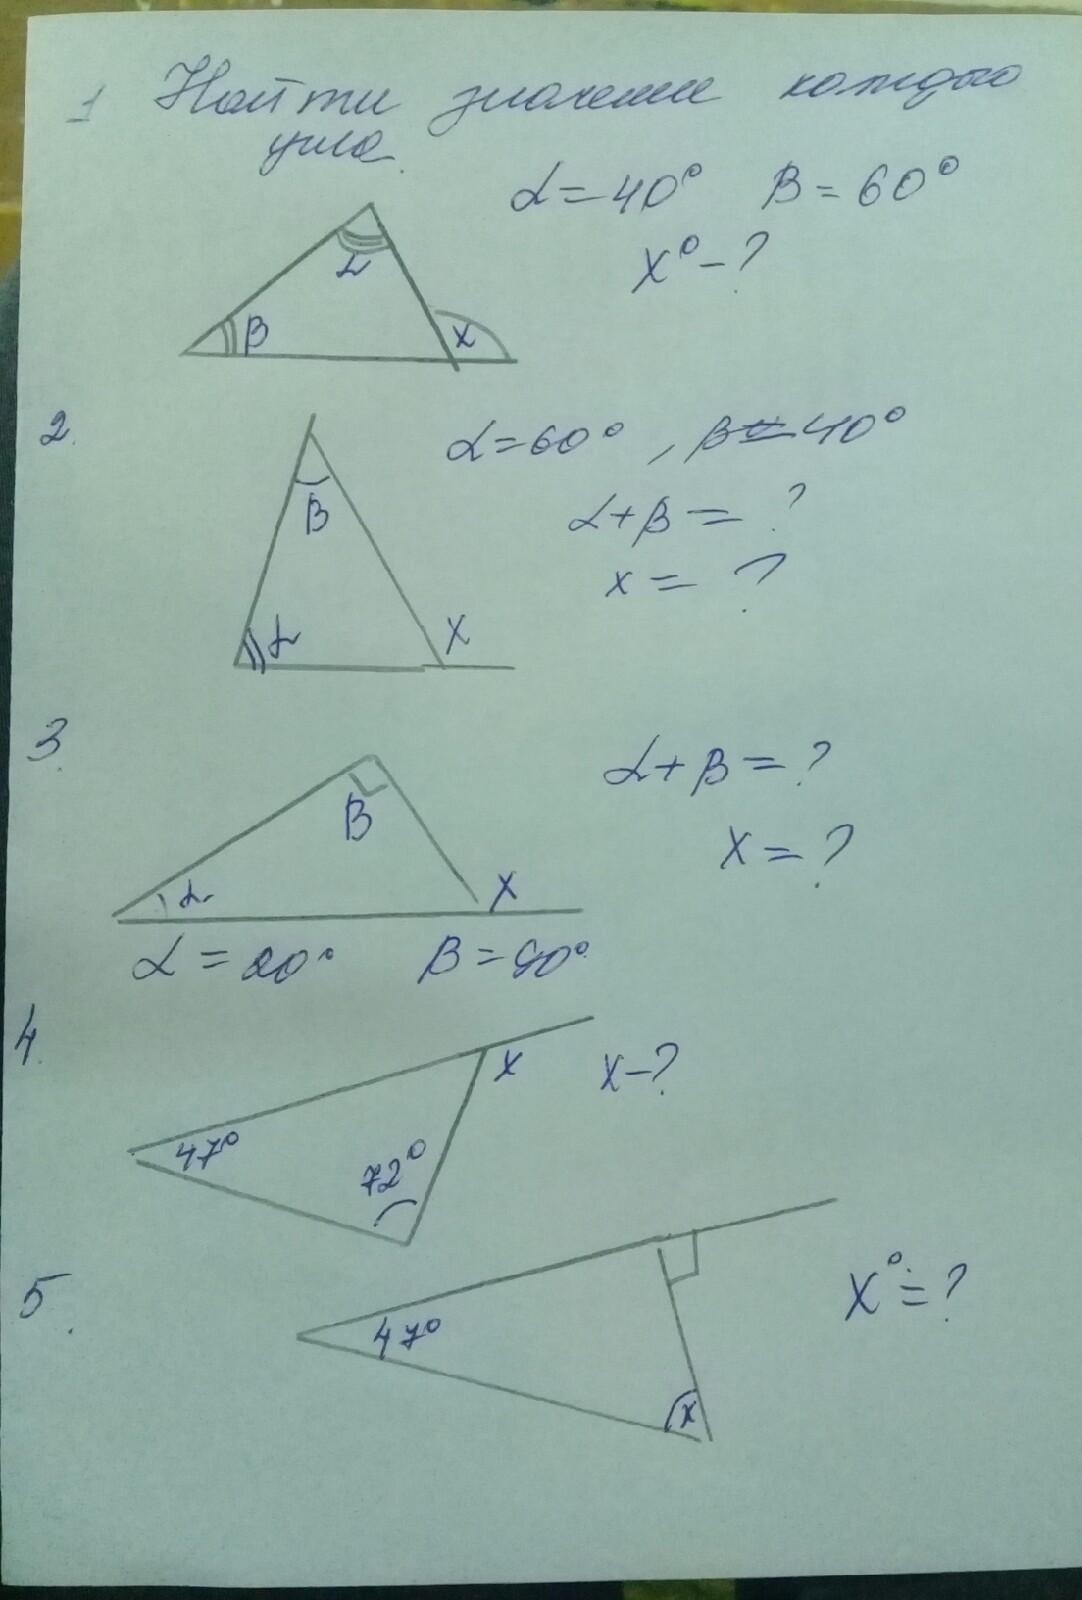 1 Найти значение каждого
угла.
α=40° β=60°
x°-?
α
β
x
2.
α=60°, β=40°
α+β=?
x=?
β
α
x
3.
α+β=?
x=?
β
α
x
α=20° β=90°
4.
x
x-?
47°
72°
5.
x°=?
47°
x